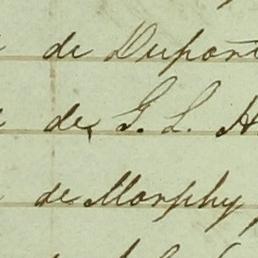 de Dupont
de G. L. H
de Morphy,